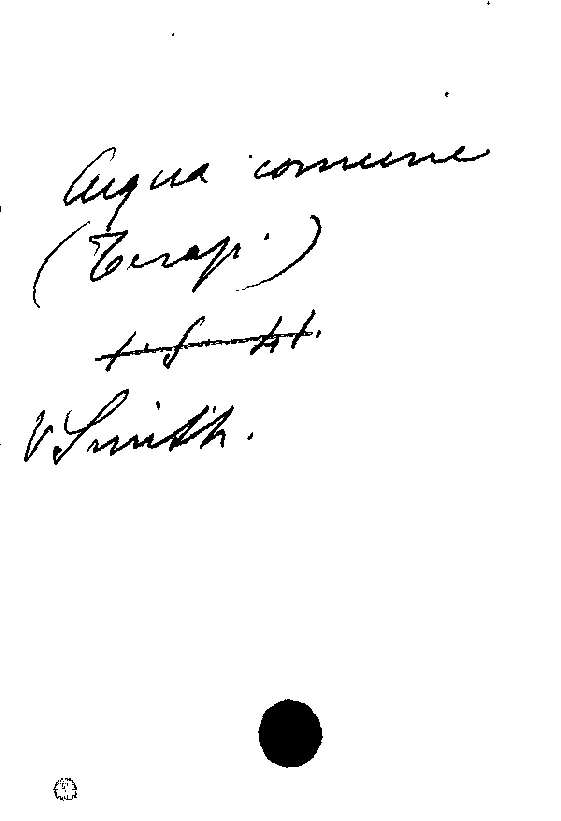 Acqua comune
(Terap.)
V Smith.